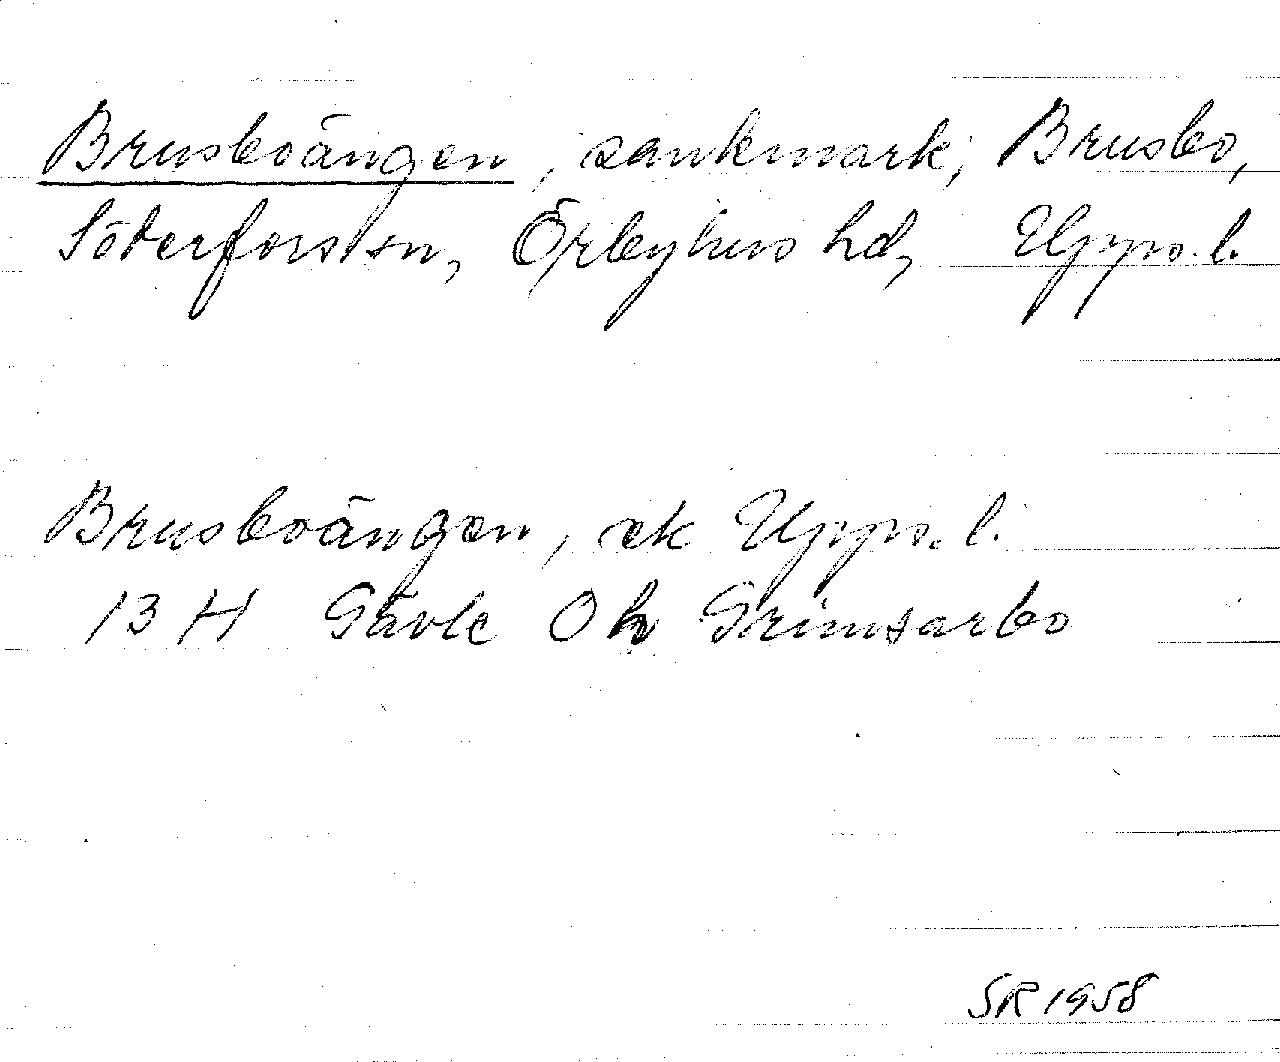 Brusboängen, sankmark, Brusbo,
Söderfors sn, Örbyhus hd, Upps. l.
Brusboängen, ek Upps. l.
13 H Gävle Grimsarbo
SR 1958